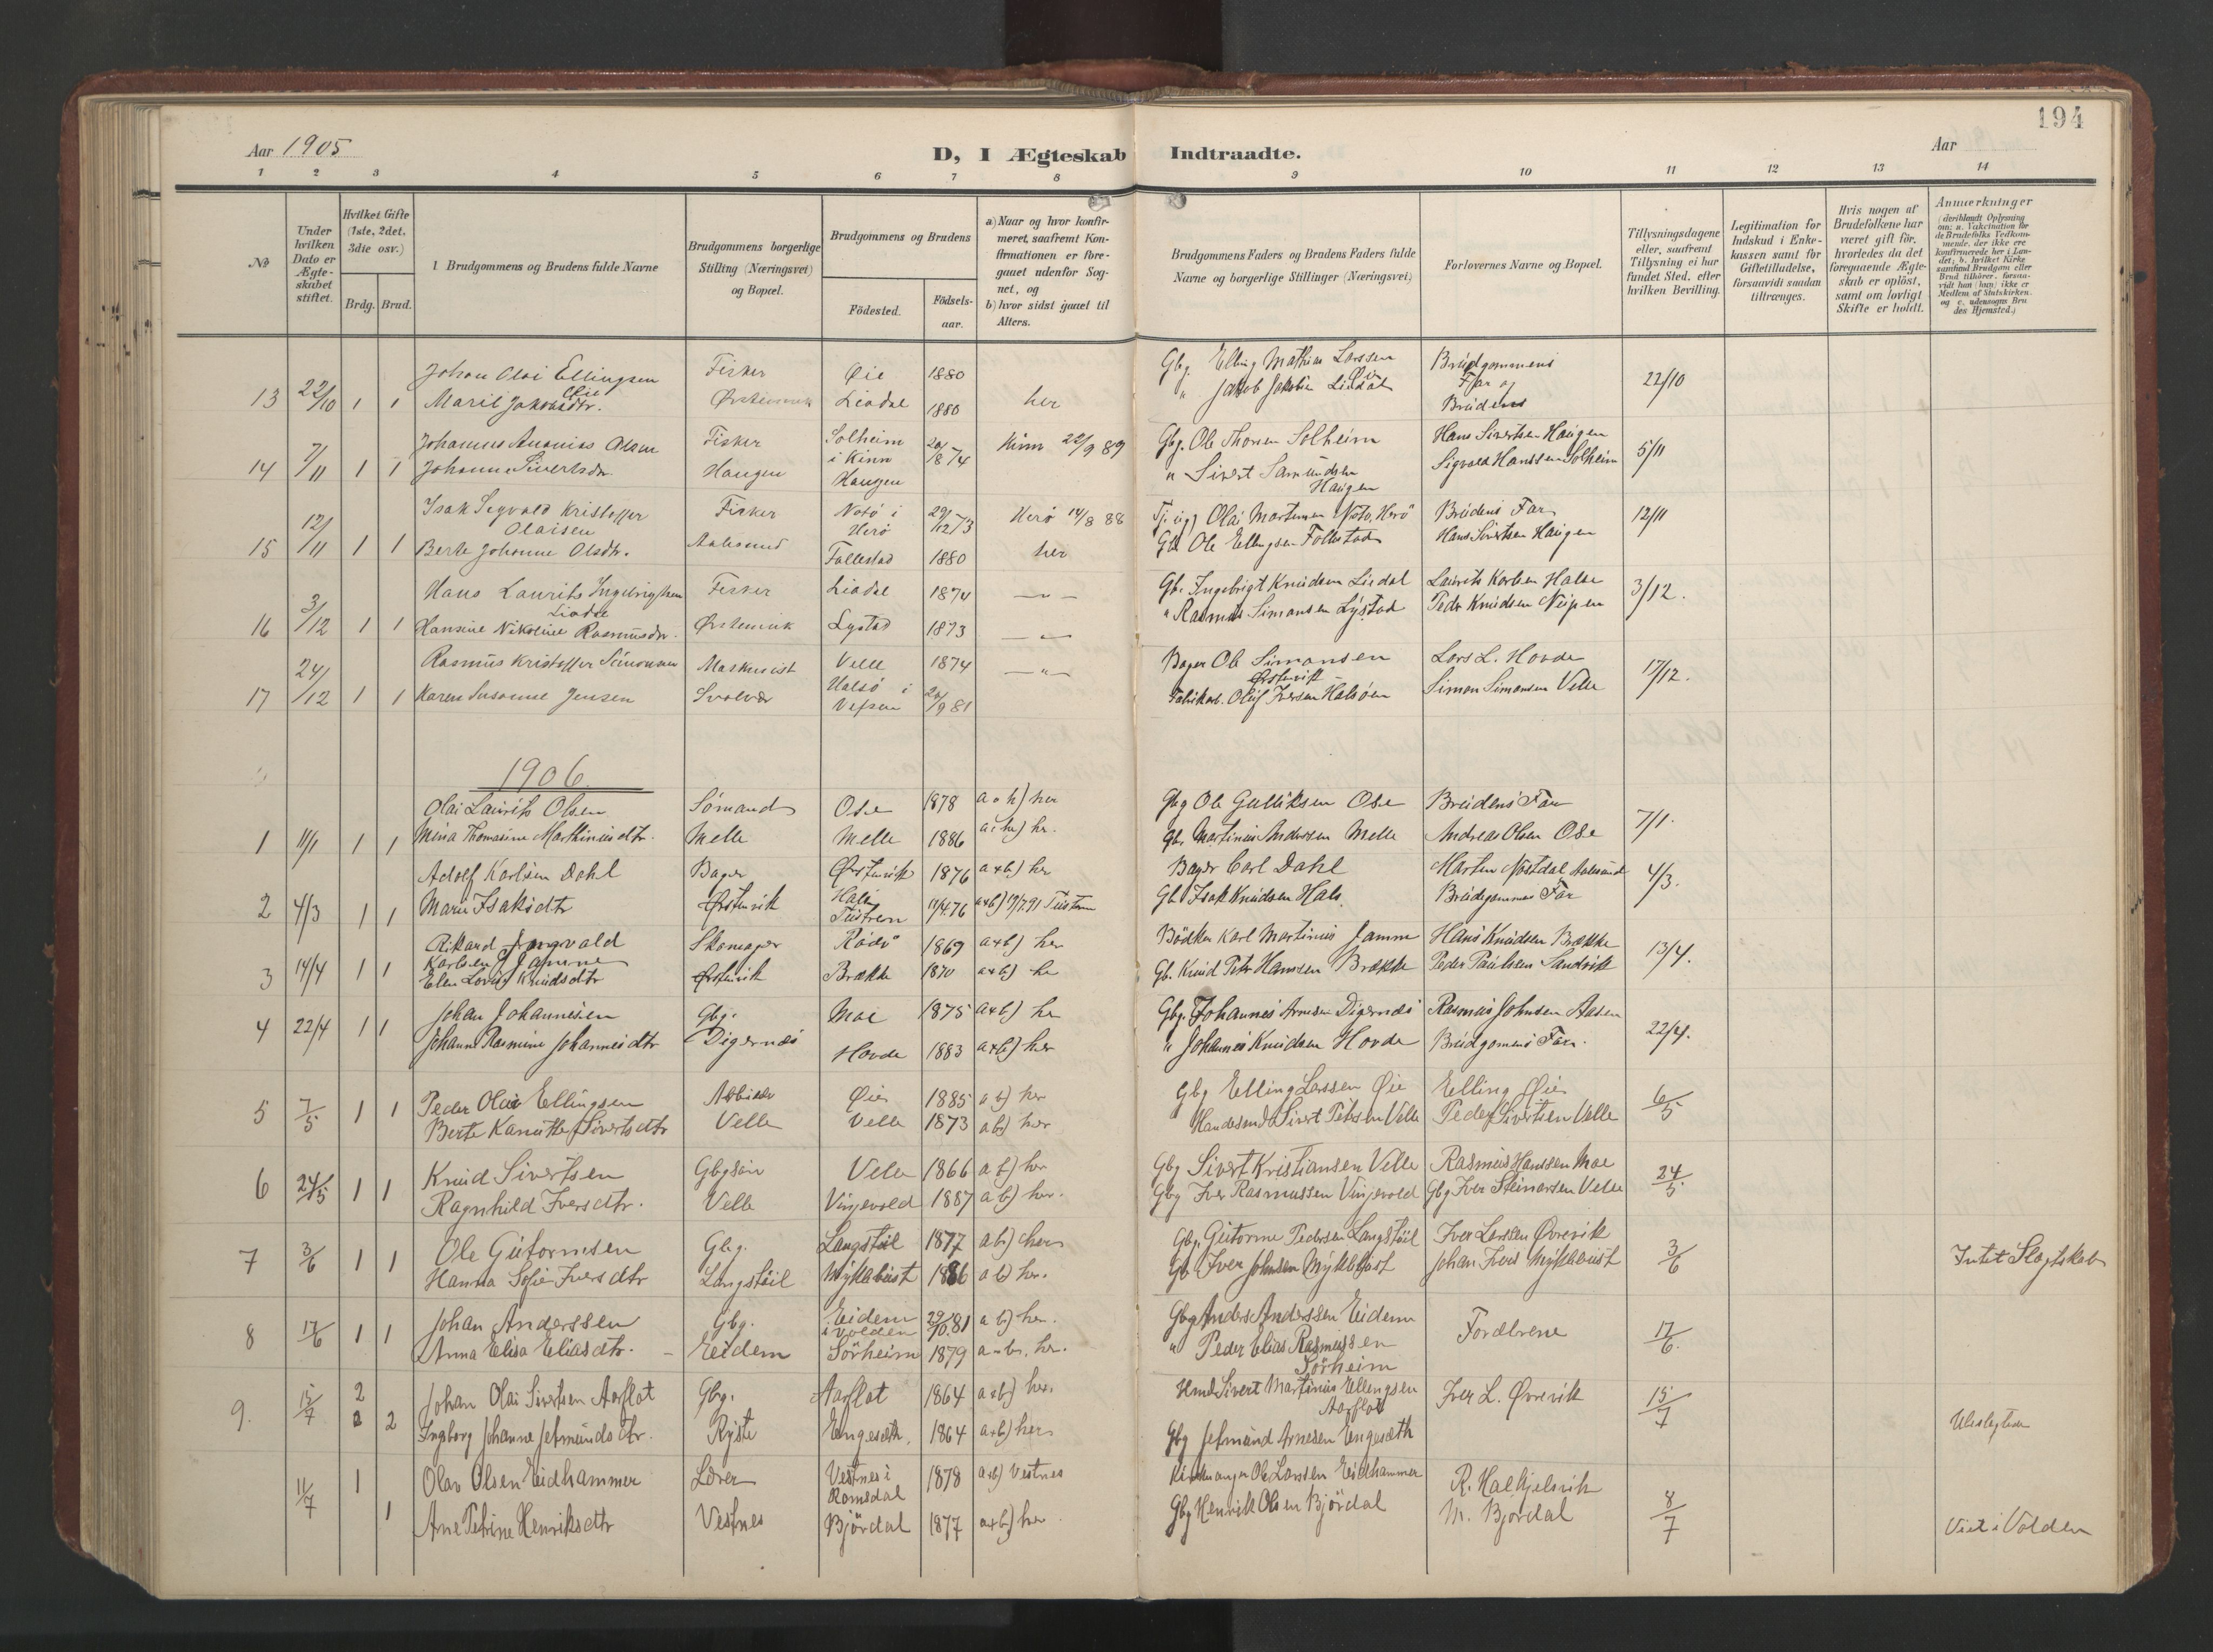 194
Aar 1905
D, I Ægteskab Indtraadte.
Aar
1 2 3 4 5 6 7 8 9 10 11 12 13 14
No
Under hvilken Dato er Ægteskabet stiftet.
Hvilket Gifte (1ste, 2det, 3die osv.)
Brdg. Brud.
Brudgommens og Brudens fulde Navne
Brudgommens borgerlige Stilling (Næringsvei) og Bopæl.
Brudgommens og Brudens
Födested.
Födselsaar.
a) Naar og hvor konfirmeret, saafremt Konfirmationen er foregaaet udenfor Sognet, og
b) hvor sidst gaaet til Alters.
Brudgommens Faders og Brudens Faders fulde Navne og borgerlige Stillinger (Næringsvei)
Forlovernes Navne og Bopæl.
Tillysningsdagene eller, saafremt Tillysning ei har fundet Sted, efter hvilken Bevilling.
Legitimation for Indskud i Enkekassen samt for Giftetilladelse, forsaavidt saadan tiltrænges.
Hvis nogen af Brudefolkene har været gift för, hvorledes da det foregaaende Ægteskab er oplöst, samt om lovligt Skifte er holdt.
Anmerkninger
Johan Olai Ellingsen Fisker Øie 1880 Gbg. Elling Mathias Larssen Brudgommens
Øie Far og
13 22/10 1 1 Marie Jakobsdtr. Ørstenvik Liadal 1880 her " Jakob Jakobsen Liadal Brudens 22/10
Johannes Ananias Olsen Fisker Solheim i Kinn 20/8 74 Kinn 22/9 89 Gbg. Ole Thorsen Solheim Hans Sivertsen Haugen
14 7/11 1 1 Johanne Sivertsdr. Haugen Haugen " Sivert Samundsen Haugen Sigvald Hanssen Solheim 5/11
Isak Sigvald Kristoffer Olaisen Fisker Notö i Herö 29/12 73 Herö 14/8 88 Olai Mortensen Notö, Herö Brudens Far 12/11
15 12/11 1 1 Berte Johanne Olsdtr. Aalesund Follestad 1880 her Gbr. Ole Ellingsen Follestad Hans Sivertsen Haugen
Hans Laurits Ingebrigtsen Liadal Fisker Liadal 1874 — " — Gb. Ingebrigt Knudsen Liadal Laurits Karlsen Halse 3/12.
16 3/12 1 1 Hansine Nikoline Rasmusdr. Ørstenvik Lystad 1873 — " — " Rasmus Simonsen Lystad Peder Knudsen Nupen
Rasmus Kristoffer Simonsen Maskinist Velle 1874 — " — Bager Ole Simonsen Ørstenvik Lars L. Hovde 17/12.
17 24/12 1 1 Karen Susanne Jensen Svolvær Halsö i Vefsen 20/9 81 Fabrikarb. Oluf Iversen Halsöen Simon Simonsen Velle
1906
Olai Laurits Olsen Sömand Ose 1878 a o b) her Gbg Ole Gulliksen Ose Brudens Far 7/1.
1 11/1 1 1 Mina Thomasine Martinusdtr. Melle Melle 1886 Gb. Martinus Andersen Melle Andreas Olsen Ose
Adolf Karlsen Dahl Bager Ørstenvik 1876 a+b) her Bager Carl Dahl Marten Nöstdal Aalesund 4/3.
2 4/3 1 1 Marie Isaksdtr Ørstenvik Hals Tustern 11/4 76 a+b) 19/7 91 Tustern Gb Isak Knudsen Hals Brudgommens Far
Rikard Ingvald Karlsen Jamne Skomager Rödö 1869 a+b) her Bödker Karl Martinus Jamne Hans Knudsen Brække 13/4.
3 14/4 1 1 Elen Lovise Knudsdtr Ørstenvik Brække 1870 a+b) he Gb. Knud Petr Hanssen Brække Peder Paulsen Sandvik
Johan Johannesen Gbg. Moe 1875 a+b) he Gbg. Johannes Arnesen Digernæs Rasmus Johnsen Aasen
4 22/4 1 1 Johanne Rasmine Johannesdtr Digernæs Hovde 1883 a+b) her " Johannes Knudsen Hovde Brudgomens Far. 22/4.
5 7/5 1 1 Peder Olai Ellingsen Arbeider Øie 1885 a b) her Gbg Elling Larssen Øie Elling Øie 6/5
Berte Kanutte Sivertsdtr Velle Velle 1873 a b) her Handelsmd Sivert Petersen Velle Peder Sivertsen Velle
6 24/5 1 1 Knud Sivertsen Gbgsön Velle 1866 a b) her Gbg Sivert Kristiansen Velle Rasmus Hanssen Moe 24/5.
Ragnhild Iversdtr. Velle Vinjevold 1887 a b) her. Gbg Iver Rasmussen Vinjevold Gbg Iver Steinarsen Velle
7 3/6 1 1 Ole Gutormsen Gbg. Langstöil 1877 a b) her Gbg. Gutorme Pedersen Langstöil Iver Larssen Øvrevik 3/6
Hanna Sofie Iversdtr Langstöil Myklebust 1886 a b) her. Gb. Iver Johnsen Myklebust Johan Ivers Myklebust Intet Slegtskab
8 17/6 1 1 Johan Anderssen Gbg. Eidem i Volden 29/10 81 a b) her. Gbg Anders Anderssen Eidem Forældrene 17/6.
Anna Elisa Eliasdtr. Eidem Sörheim 1879 a b. her. " Peder Elias Rasmussen Sörheim
9. 15/7 2 Johan Olai Sivertsen Aarflot Gbg. Aarflot 1864 a+b) her. Hmd Sivert Martinus Ellingsen Aarflot Iver L. Øvrevik 15/7
2 2 Ingborg Johanne Jetmundsdtr. Ryste Engesæth 1864 a+b) her Gbg Jetmund Arnesen Engesæth Ubeslegtede
11/7 1 Olav Olsen Eidhammer Lærer Vestnes i Romsdal 1878 a+b) Vestnes Kirkesanger Ole Larssen Eidhammer R. Halkjelsvik 8/7
1 Ane Petrine Henriksdtr Vestnes Björdal 1877 a+b) her Gbg Henrik Olsen Björdal M. Bjordal Viet i Volden